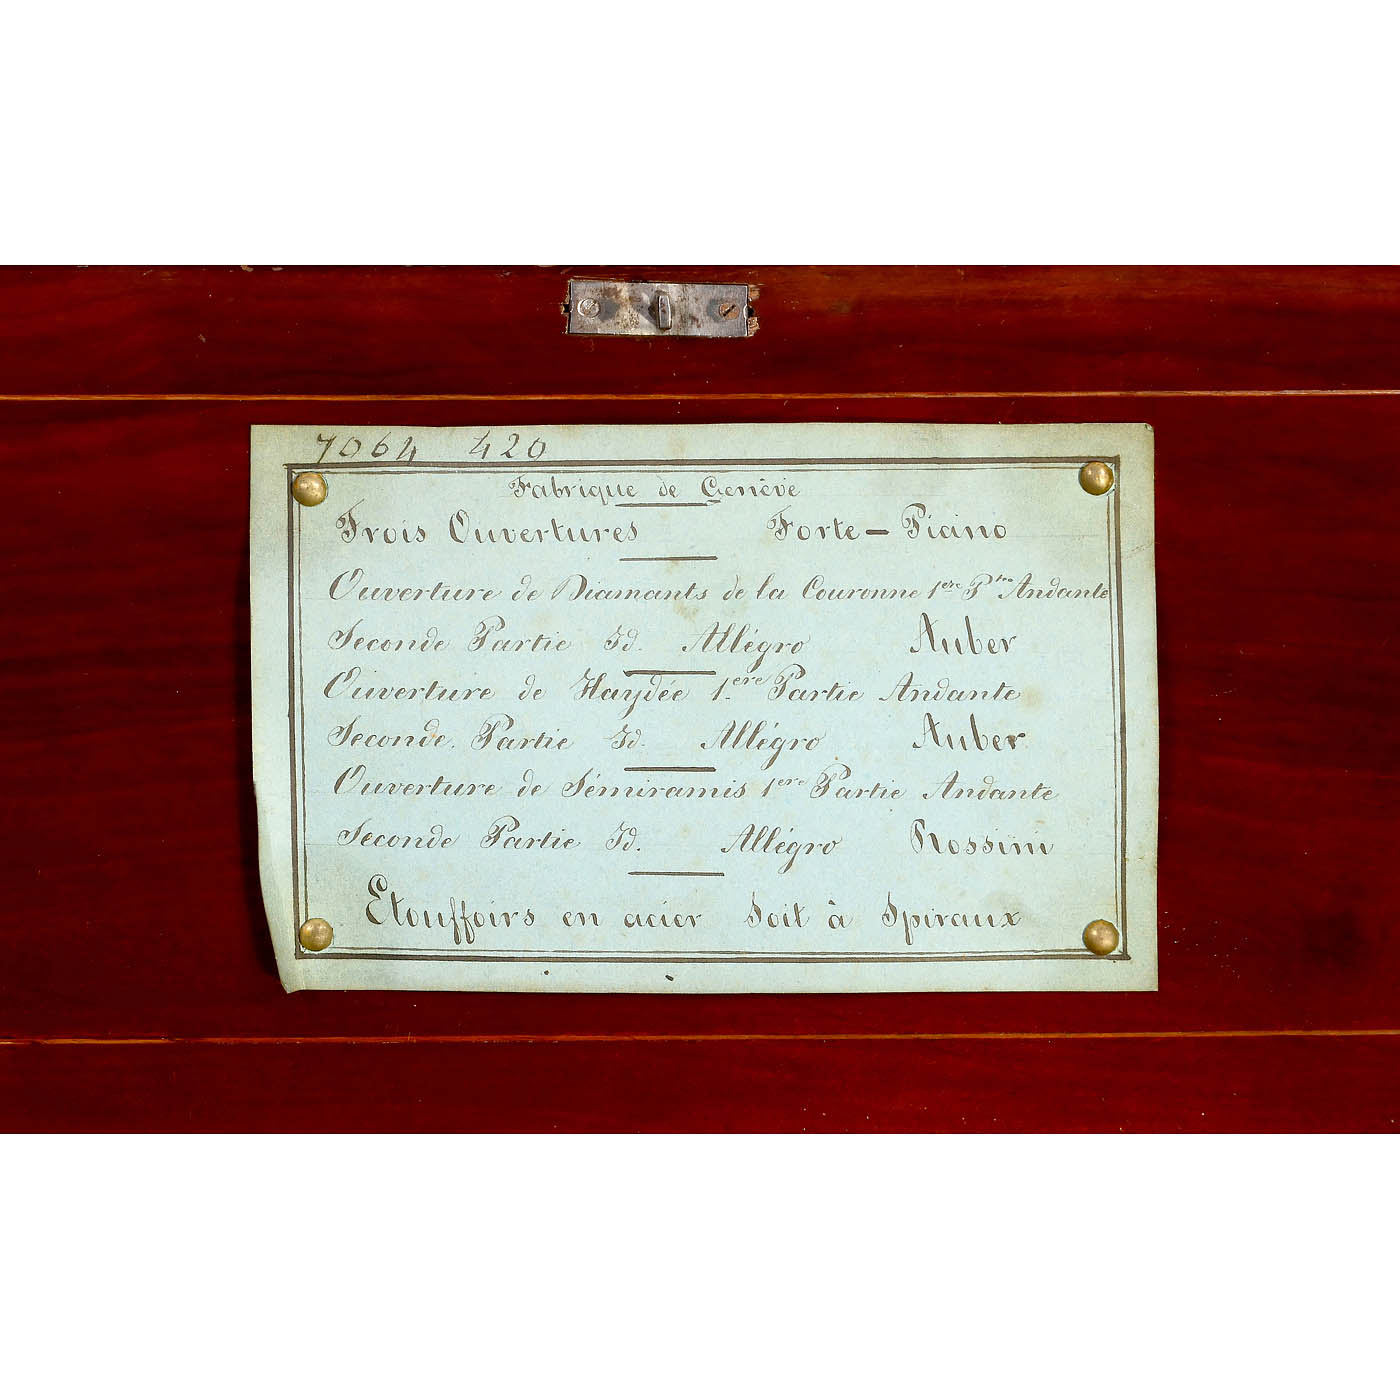 7064 420
Fabrique de Genève
Trois Ouvertures Forte - Piano
Ouverture de Diamants de la Couronne 1ere Ptie Andante
Seconde Partie Id. Allégro Auber
Ouverture de Haydée 1ere Partie Andante
Seconde. Partie Id. Allégro Auber
Ouverture de Sémiramis 1ere Partie Andante
Seconde Partie Id. Allégro Rossini
Etouffoirs en acier Soit à Spiraux